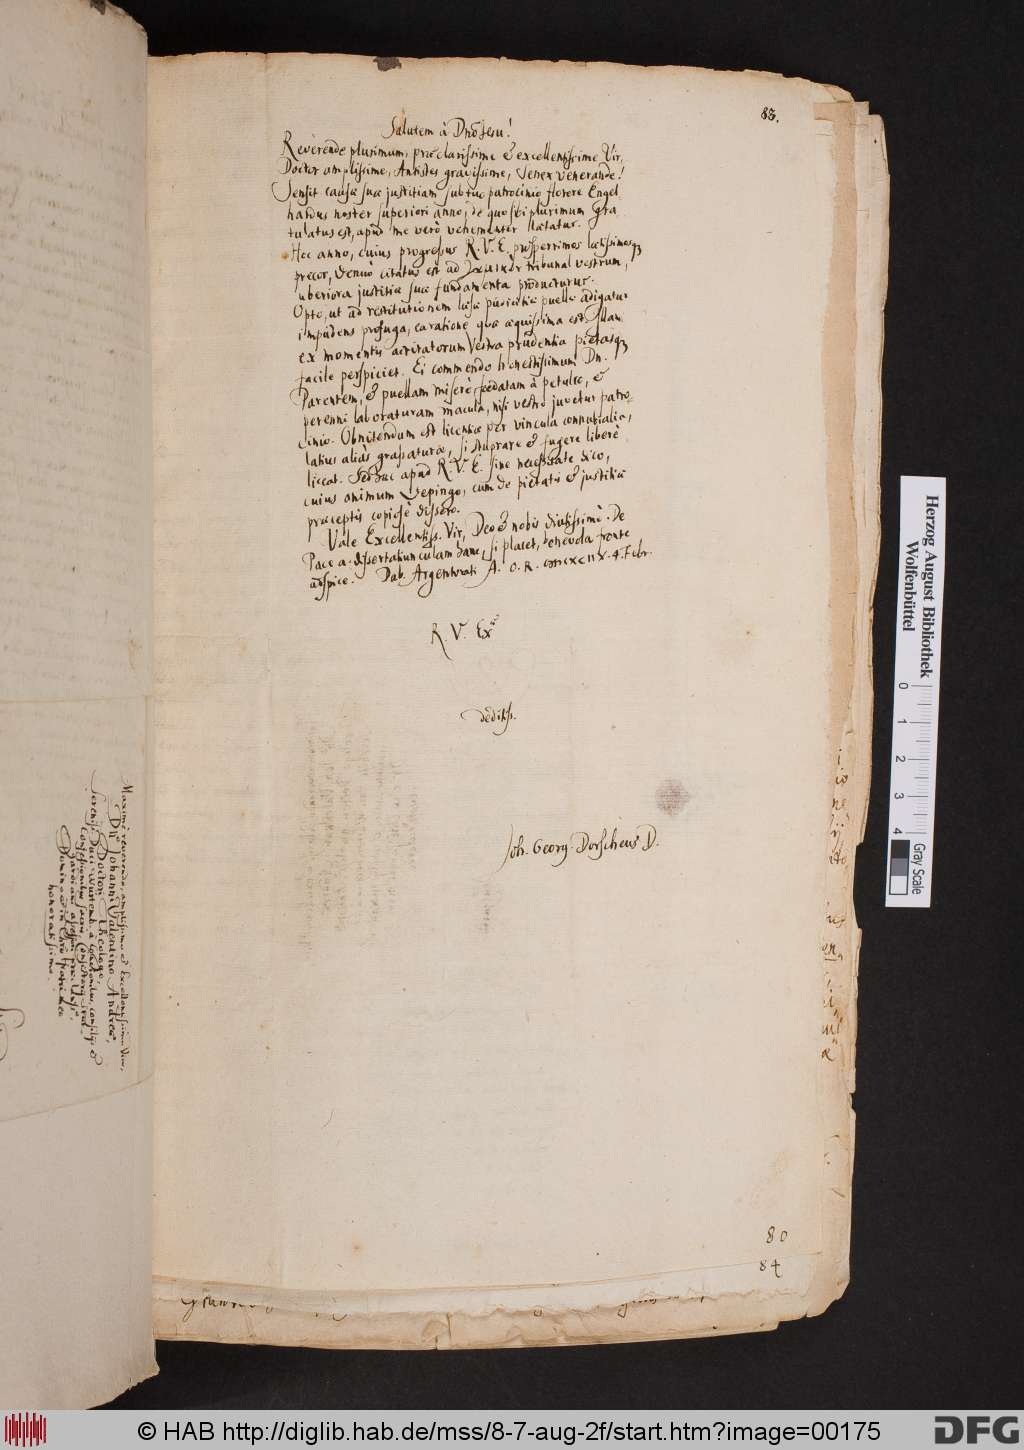 83.
Salutem à Dno Jesu!
Reverende plurimum, præclarissime & excellentissime Vir,
Doctor amplissime, Antistes gravissime, Senex venerande!
Sensit causæ suæ justitiam sub tuo patrocinio florere Engel
hardus noster superiori anno, de quo sibi plurimum Gra
tulatus est, apud me verò vehementer lætatur.
Hoc anno, cuius progressus R. V. E. prosperrimos lætissimosq
precor, denuò citatus est ad tribunal vestrum,
uberiora justitiæ suæ fundamenta producturus.
Opto, ut ad restitutionem læsæ pudicitiæ puellæ adigatur
impudens profuga, ea ratione quæ æquissima est. Illam
ex momentis acticatorum Vestra prudentia pietasq
facile perspiciet. Ei commendo honestissimum Dn.
Parentem, & puellam miserè fœdatam à petulco, &
perenni laboraturam macula, nisi vestro juvetur patro-
cinio. Obnitendum est licentiæ per vincula connubialia,
latius aliàs grassaturæ, si stuprare & fugere liberè
liceat. Sed hæc apud R. V. E. sine necessitate dico,
cuius animum depingo, cum de pietatis & justitiæ
præceptis copiosè dissero.
Vale Excellentiss. Vir, Deo & nobis diutissimè. De
Pace a. dissertatiunculam hanc, si placet, benevola fronte
adspice. Dab. Argentorati A. O. R. 4. Febr.
R. V. Ex
deditiss.
Joh. Georg. Dorscheus D.
80
84
Maximè reverendo, amplissimo & Excellentissimo Viro,
Dn. Johanni Valentino Andreæ,
Doctori Theologo,
Sereniss. Duci Würtemb. à
Confessionibus sacris, Consistorij
Domino & in Chro fratri meo
honoratissimo.
Herzog August Bibliothek
Wolfenbüttel
0 1 2 3 4
Gray Scale
© HAB http://diglib.hab.de/mss/8-7-aug-2f/start.htm?image=00175
DFG